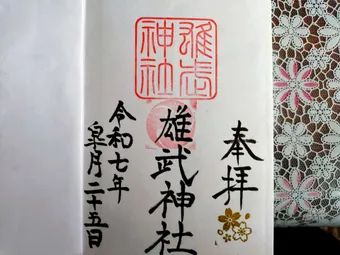 奉拝
雄武神社
雄武神社
令和七年
皐月二十五日